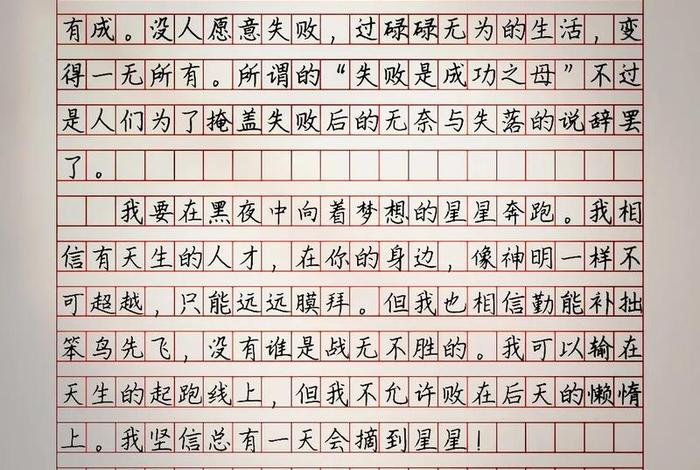 有成。没人愿意失败，过碌碌无为的生活，变
得一无所有。所谓的“失败是成功之母”不过
是人们为了掩盖失败后的无奈与失落的说辞罢
了。
我要在黑夜中向着梦想的星星奔跑。我相
信有天生的人才，在你的身边，像神明一样不
可超越，只能远远膜拜。但我也相信勤能补拙
笨鸟先飞，没有谁是战无不胜的。我可以输在
天生的起跑线上，但我不允许败在后天的懒惰
上。我坚信总有一天会摘到星星！